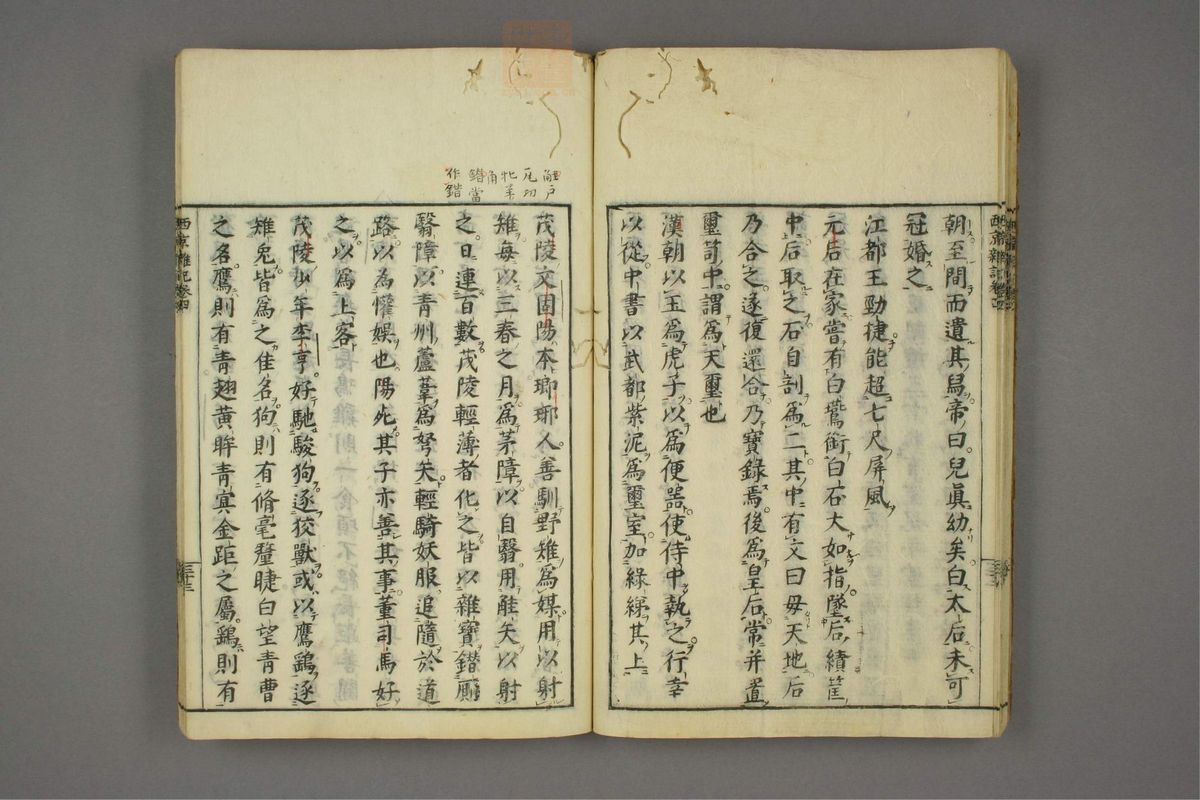 朝至閤而遺其舄帝曰兒眞幼矣白太后未可
冠婚之
江都王勁捷能超七尺屏風
元后在家嘗有白鷰銜白石大如指墜后績筐
中后取之石自剖爲二其中有文曰毋天地后
乃合之遂復還合乃寶錄焉後爲皇后常并置
璽笥中謂爲天璽也
漢朝以玉爲虎子以爲便器使侍中執之行幸
以從中書以武都紫泥爲璽室加綠綈其上
西京雜記卷四
茂陵文固陽本瑯琊人善馴野雉爲媒用以射
雉每以三春之月爲茅障以自翳用觟矢以射
之日連百數茂陵輕薄者化之皆以雜寶錯厠
翳障以青州蘆葦爲弩矢輕騎妖服追隨於道
路以為懽娛也陽死其子亦善其事董司馬好
之以爲上客
茂陵少年李亨好馳駿狗逐狡獸或以鷹鷂逐
雉兔皆爲之佳名狗則有脩毫釐睫白望青曹
之名鷹則有青翅黃眸青㝠金距之屬鷂則有
西京雜記卷四
觟戶
瓦切
牝羊
角
鍇當
作錯